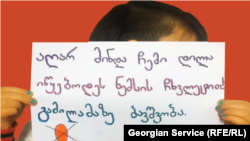 აღარ მინდა ჩემი დილა
იწყებოდეს ნემსის ჩხვლეტით!
გამილამაზე ბავშვობა.
Georgian Service (RFE/RL)